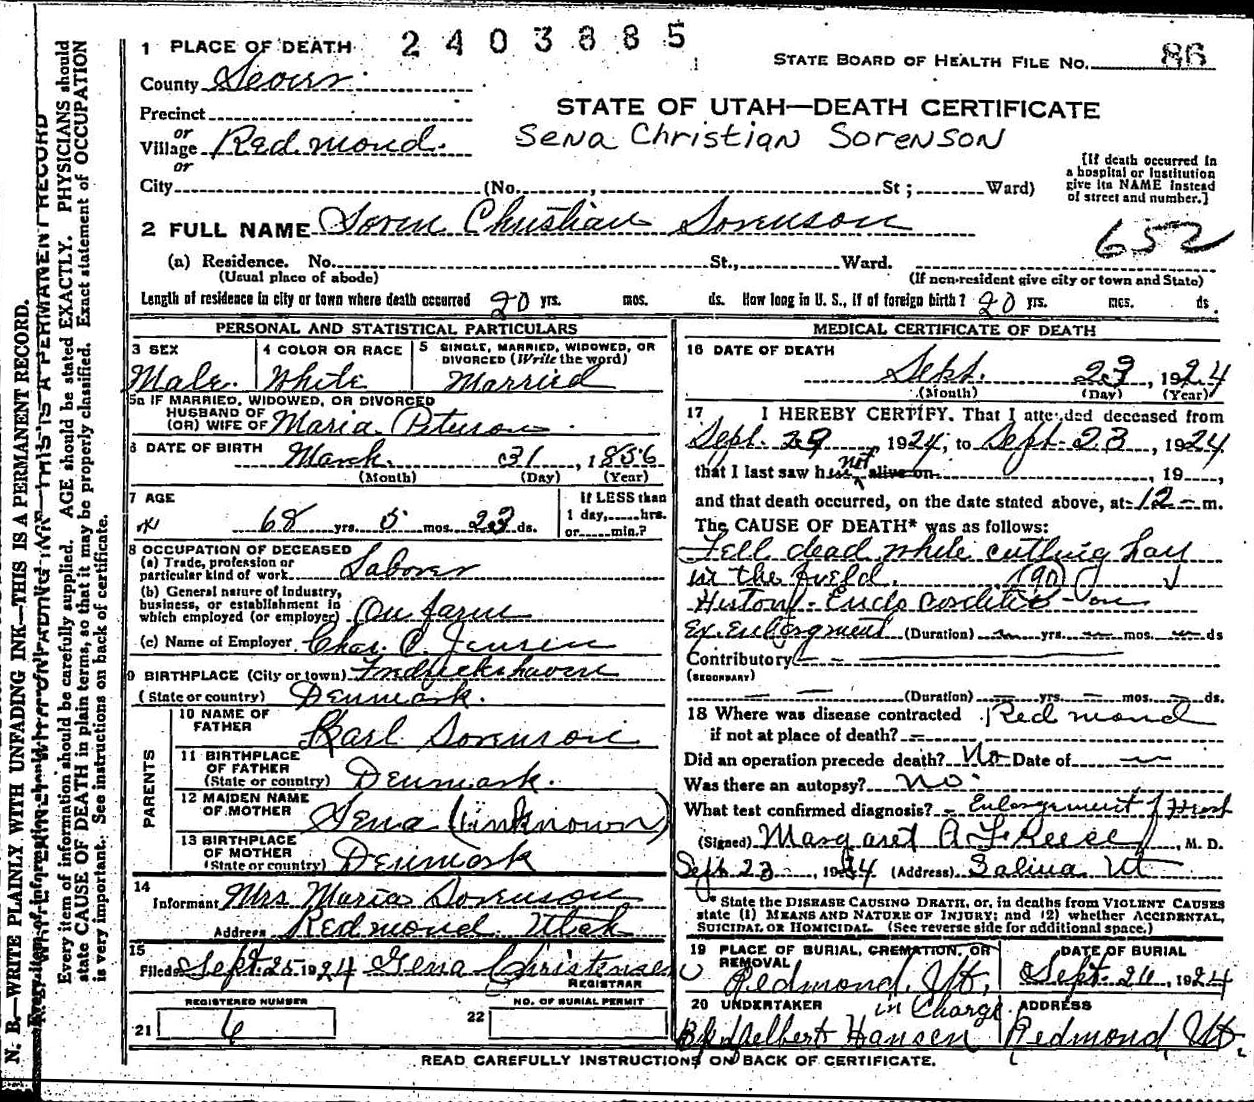 N. B.—WRITE PLAINLY WITH UNFADING INK—THIS IS A PERMANENT RECORD.
Every item of information should be carefully supplied. AGE should be stated EXACTLY. PHYSICIANS should
state CAUSE OF DEATH in plain terms, so that it may be properly classified. Exact statement of OCCUPATION
is very important. See instructions on back of certificate.
2403885
1 PLACE OF DEATH
STATE BOARD OF HEALTH FILE NO. 86
County Sevier
STATE OF UTAH—DEATH CERTIFICATE
Precinct
or
Sena Christian Sorenson
Village Redmond.
or
City (No. , St ; Ward)
[If death occurred in
a hospital or institution
give its NAME instead
of street and number.]
2 FULL NAME Soren Christian Sorenson
652
(a) Residence. No. St., Ward.
(Usual place of abode) (If non-resident give city or town and State)
Length of residence in city or town where death occurred 20 yrs. mos. ds. How long in U. S., if of foreign birth? 20 yrs. mos. ds.
PERSONAL AND STATISTICAL PARTICULARS
3 SEX 4 COLOR OR RACE 5 SINGLE, MARRIED, WIDOWED, OR
DIVORCED (Write the word)
Male. White Married
5a IF MARRIED, WIDOWED, OR DIVORCED
HUSBAND OF
(OR) WIFE OF Maria Peterson
6 DATE OF BIRTH March 31, 1856
(Month) (Day) (Year)
7 AGE If LESS than
1 day, hrs.
68 yrs. 5 mos. 23 ds. or min.?
8 OCCUPATION OF DECEASED
(a) Trade, profession or
particular kind of work Laborer
(b) General nature of industry,
business, or establishment in
which employed (or employer) On farm
(c) Name of Employer Chas. C. Jensen
9 BIRTHPLACE (City or town) Fredrickshaven
(State or country) Denmark.
PARENTS
10 NAME OF
FATHER Karl Sorenson
11 BIRTHPLACE
OF FATHER
(State or country) Denmark.
12 MAIDEN NAME
OF MOTHER Sena (unknown)
13 BIRTHPLACE
OF MOTHER
(State or country) Denmark
14
Informant Mrs Maria Sorenson
Address Redmond Utah
15
Filed Sept. 25 1924 Gena Christensen
REGISTRAR
REGISTERED NUMBER NO. OF BURIAL PERMIT
21 6 22
MEDICAL CERTIFICATE OF DEATH
16 DATE OF DEATH
Sept. 23, 1924
(Month) (Day) (Year)
17 I HEREBY CERTIFY, That I attended deceased from
Sept. 23, 1924, to Sept. 23, 1924
that I last saw him not alive on , 19 ,
and that death occurred, on the date stated above, at 12 m.
The CAUSE OF DEATH* was as follows:
Fell dead while cutting hay
in the field. (90)
History - Endocarditis on
Ex. Enlargment (Duration) yrs. mos. ds
Contributory
(SECONDARY)
(Duration) yrs. mos. ds.
18 Where was disease contracted Redmond
if not at place of death?
Did an operation precede death? No Date of
Was there an autopsy? no.
What test confirmed diagnosis? Enlargement of Heart
(Signed) Margaret A. Freece, M. D.
Sept 23, 1924 (Address) Salina Ut
* State the DISEASE CAUSING DEATH, or, in deaths from VIOLENT CAUSES
state (1) MEANS AND NATURE OF INJURY; and (2) whether ACCIDENTAL,
SUICIDAL OR HOMICIDAL. (See reverse side for additional space.)
19 PLACE OF BURIAL, CREMATION, OR DATE OF BURIAL
REMOVAL
Redmond, Ut. Sept. 26, 1924
20 UNDERTAKER in Charge ADDRESS
Delbert Hansen Redmond, Ut.
READ CAREFULLY INSTRUCTIONS ON BACK OF CERTIFICATE.